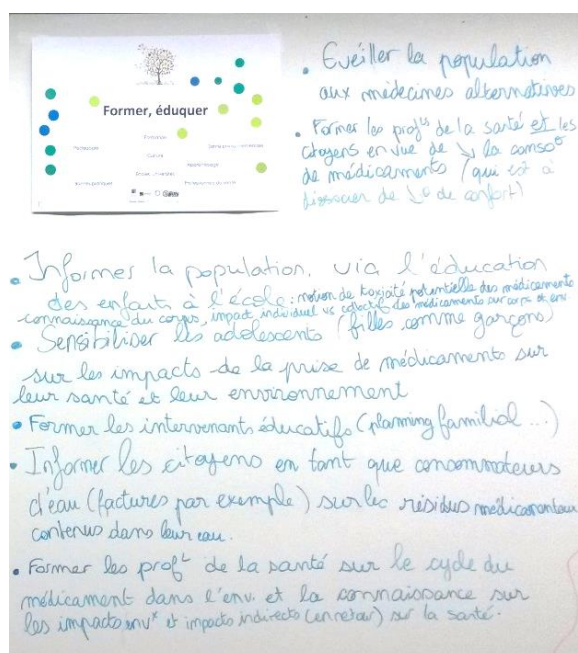 Former, éduquer
Formation
Pédagogie
Culture
Apprentissage
• Eveiller la population
aux médecines alternatives
• Former les profls de la santé et les
citoyens en vue de ↘ la consoº
de médicaments (qui est à
dissocier de ↘ de confort)
• Informer la population, via l'éducation
des enfants à l'école : notion de toxicité potentielle des médicaments
connaissance du corps, impact individuel vs collectif des médicaments sur corps et env.
• Sensibiliser les adolescents (filles comme garçons)
sur les impacts de la prise de médicaments sur
leur santé et leur environnement
• Former les intervenants éducatifs (planning familial ...)
• Informer les citoyens en tant que consommateurs
d'eau (factures par exemple) sur les résidus médicamenteux
contenus dans leur eau.
• Former les profL de la santé sur le cycle du
médicament dans l'env. et la connaissance sur
les impacts envx et impacts indirects (en retour) sur la santé.